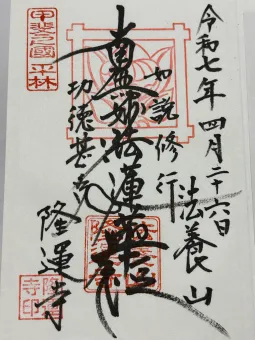 令和七年四月二十六日
法養山
如説修行
南無妙法蓮華経
功徳甚多
隆運寺
甲斐之國 平林